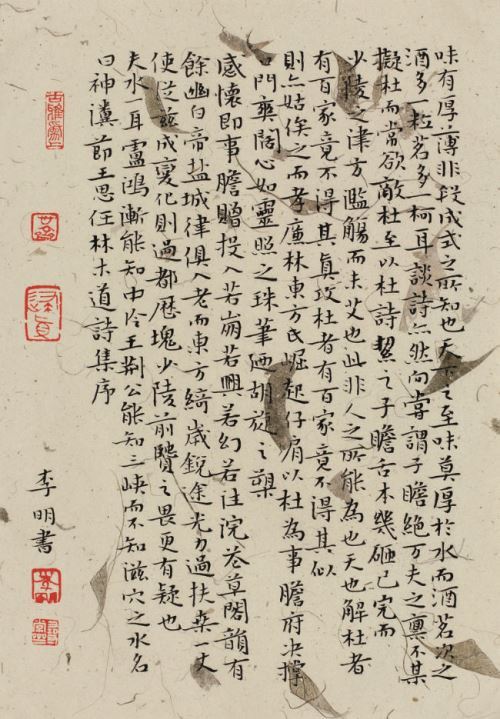 味有厚薄非段成式之所知也天下之至味莫厚於水而酒茗次之
酒多一粒茗多一柯耳談詩亦然向嘗謂子瞻絕万夫之稟不某
擬杜而常欲敵杜至以杜詩掣之子瞻舌本幾砸已完而
少陵之津方濫觴而未艾也此非人之所能為也天也解杜者
有百家竟不得其真攻杜者有百家竟不得其似
則亦姑俟之而孝廉林東方氏崛起仔肩以杜為事膽府决撑
口門爽闊心如靈照之珠筆陋胡旋之槊
感懷即事贈投入若崩若興若幻若注浣花草閣韻有
餘幽白帝盐城律俱入老而東方綺歲銳途光力過扶桑一丈
使從茲成變化則過都歷塊少陵前賢之畏更有疑也
夫水一耳盧鴻漸能知中泠王荆公能知三峽而不知滋穴之水名
曰神瀵 節王思任林木道詩集序
李明書